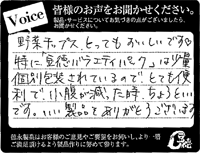 Voice
皆様のお声をお聞かせください。
製品・サービスについてお気づきの点がございましたら、
お聞かせください。
野菜チップス、とってもおいしいです。
特に「金徳バラエティパック」は少量
個別包装されているので、とても便
利で、小腹が減った時、ちょうどいい
です。いい製品をありがとうございます。
お客様のご意見やご要望をお伺いし、より一層
ご満足頂けるよう製品作りに努めて参ります。